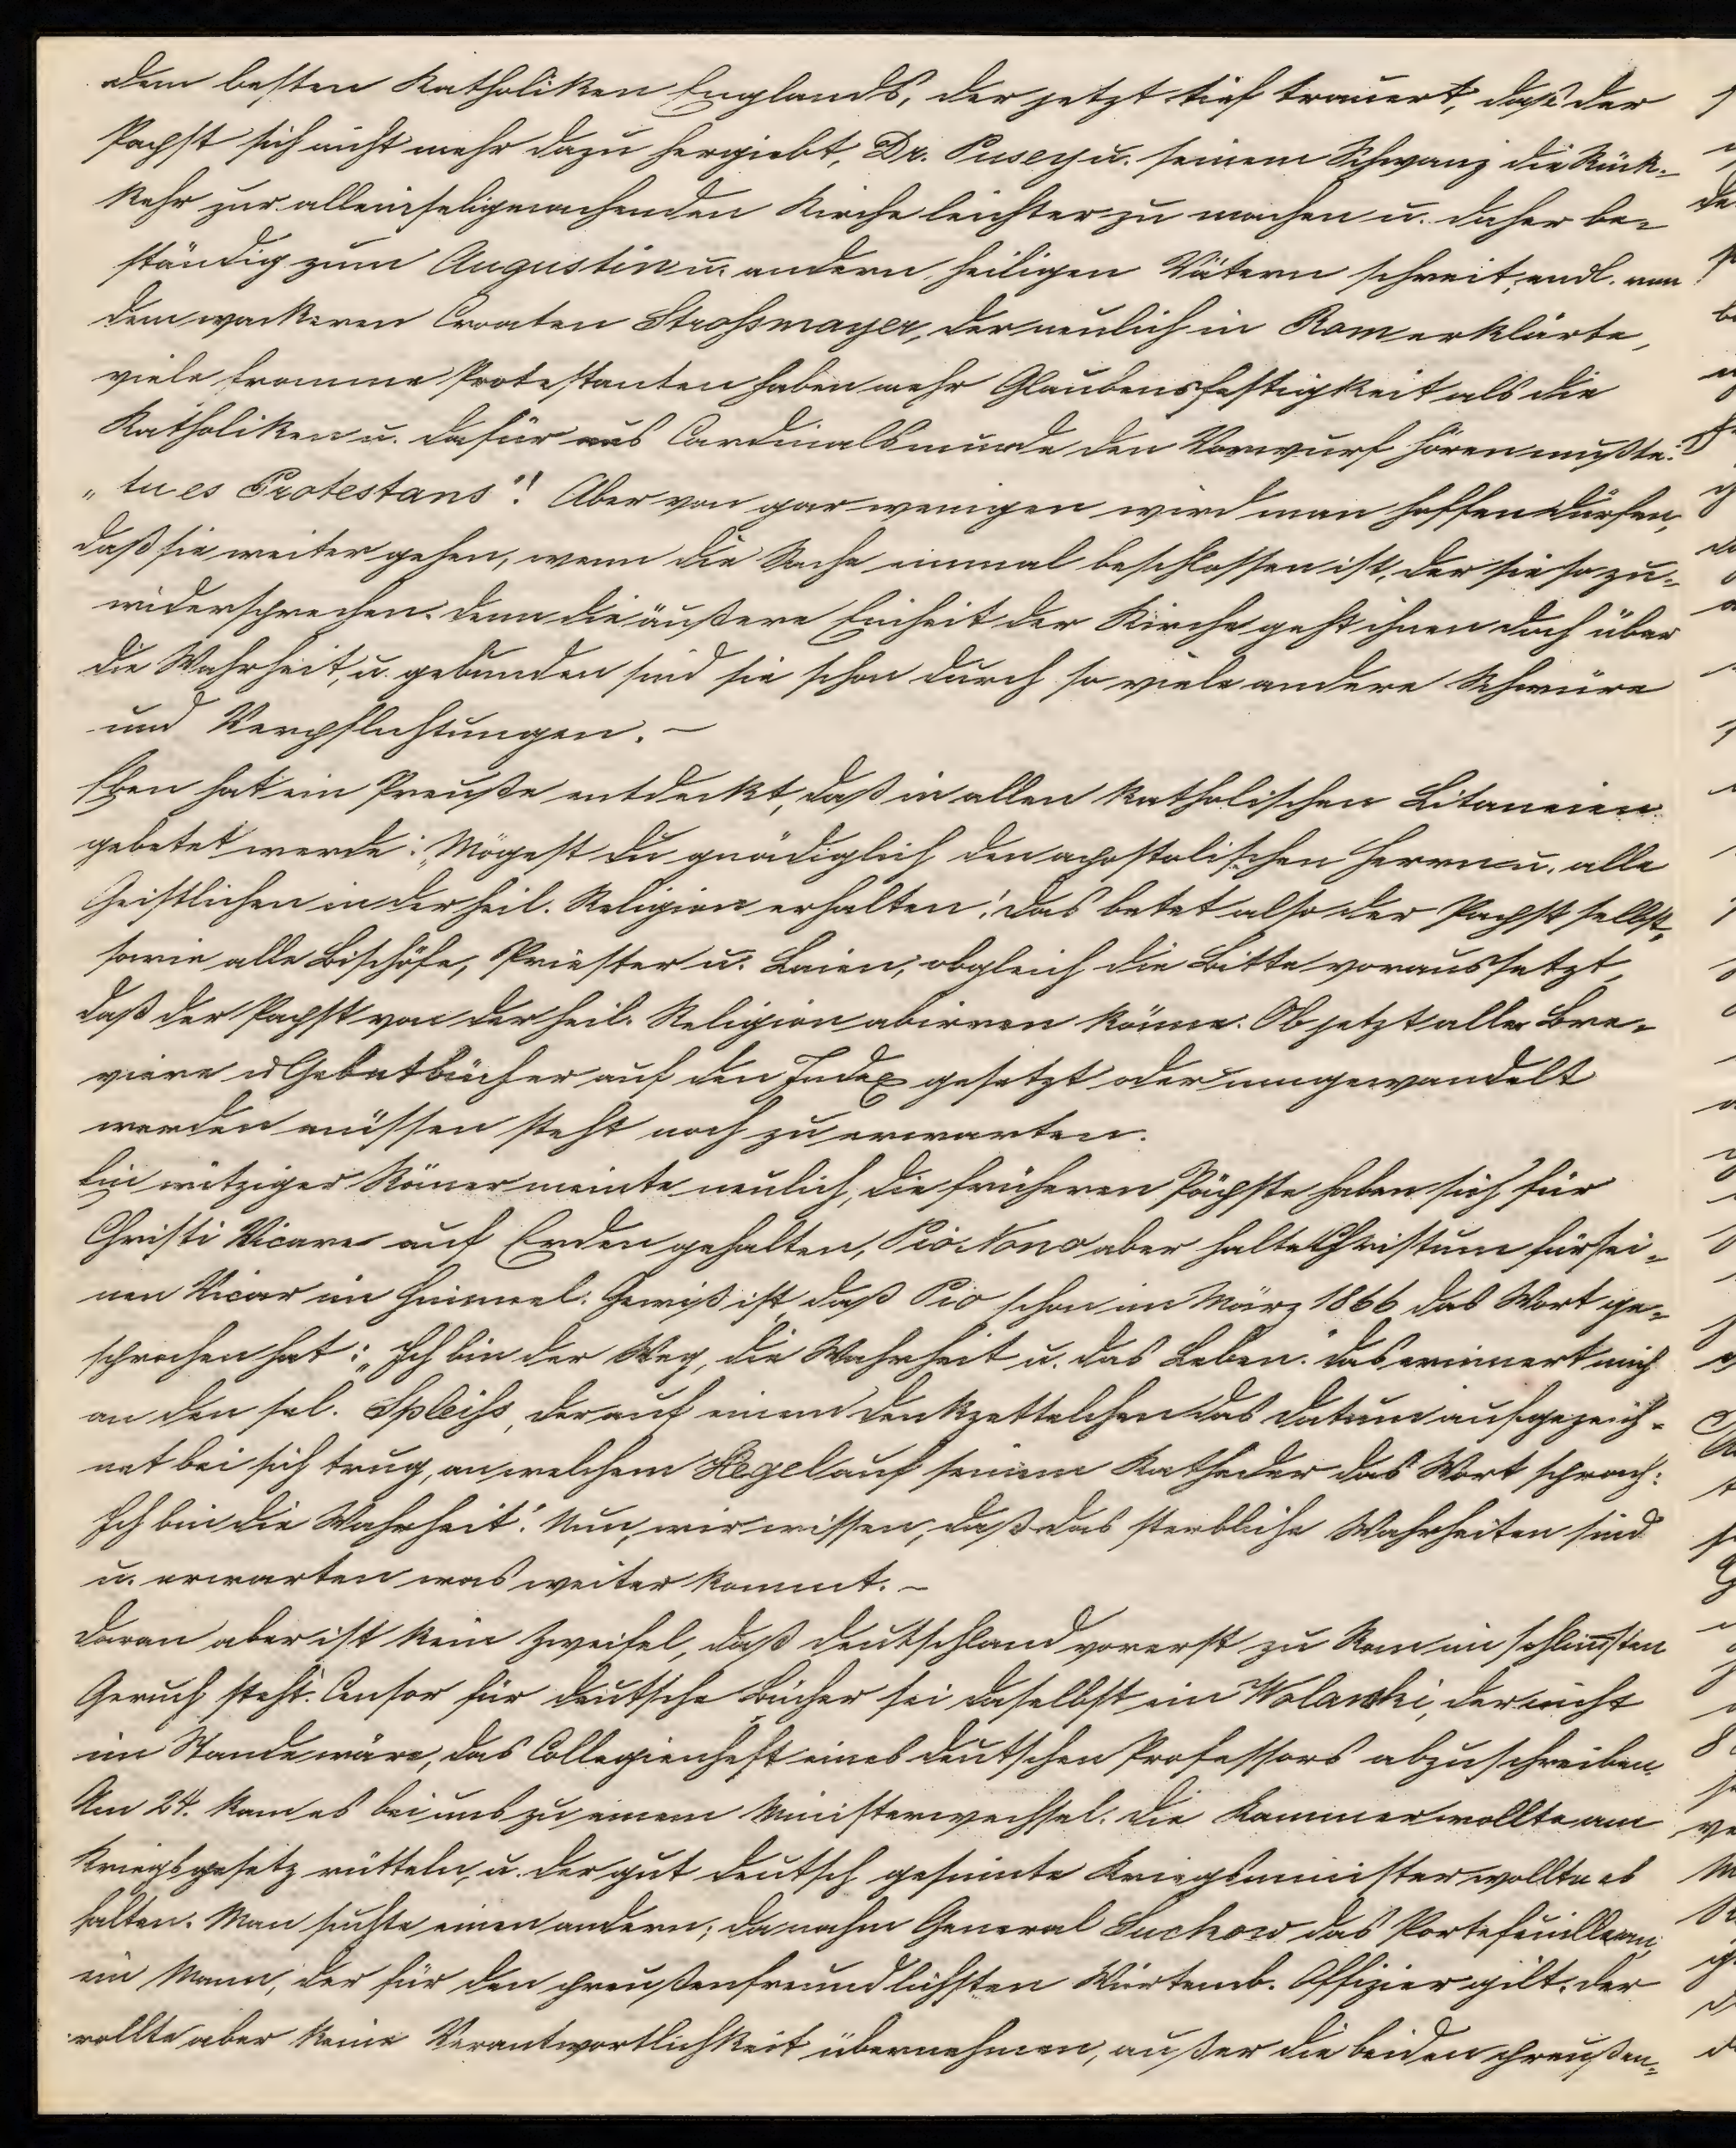 dem besten Katholiken Englands, der jetzt tief trauert, daß der
Papst sich nicht mehr dazu hergiebt, Dr. Pusey u. seinem Schwanz die Rück-
kehr zur alleinseligmachenden Kirche leichter zu machen u. daher be-
ständig zum Augustin u. andern heiligen Vätern schreit; endl. von
dem wackeren Croaten Stroßmayer, der neulich in Rom erklärte,
viele fromme Protestanten haben mehr Glaubensfestigkeit als die
Katholiken u. dafür aus Cardinalsmunde den Vorwurf hören mußte:
„tu es Protestans"! Aber von gar wenigen wird man hoffen dürfen,
daß sie weiter gehen, wenn die Sache einmal beschlossen ist, der sie so zu-
widersprechen. Denn die äußere Einheit der Kirche geht ihnen doch über
die Wahrheit, u. gebunden sind sie schon durch so viele andere Schwüre
und Verpflichtungen. –
Eben hat ein Preuße entdeckt, daß in allen katholischen Litaneien
gebetet werde: „Mögest du gnädiglich den apostolischen Herrn u. alle
Geistlichen in der heil. Religion erhalten! das betet also der Papst selbst,
sowie alle Bischöfe, Priester u. Laien, obgleich die Bitte voraussetzt,
daß der Papst von der heil. Religion abirren könne. Ob jetzt alle Bre-
viere u Gebetbücher auf den Index gesetzt oder umgewandelt
werden müssen steht noch zu erwarten.
Ein witziger Römer meinte neulich, die früheren Päpste haben sich für
Christi Vicare auf Erden gehalten, Pio Nono aber halte Christum für sei-
nen Vicar im Himmel. Gewiß ist, daß Pio schon im März 1866 das Wort ge-
sprochen hat: „Ich bin der Weg, die Wahrheit u. das Leben." das erinnert mich
an den sel. Spleiß, der auf einem Denkzettelchen das Datum aufgezeich-
net bei sich trug, an welchem Hegel auf seinem Katheder das Wort sprach:
Ich bin die Wahrheit". Nun, wir wissen, daß das sterbliche Wahrheiten sind
u. erwarten was weiter kommt. –
Daran aber ist kein Zweifel, daß Deutschland vorerst zu Rom im schlimsten
Geruch steht. Censor für deutsche Bücher sei daselbst ein Wolanski, der nicht
im Stande wäre, das Collegienheft eines deutschen Professors abzuschreiben.
Am 24. kam es bei uns zu einem Ministerwechsel. Die Kammer wollte am
Kriegsgesetz rütteln, u. der gut deutsch gesinnte Kriegsminister wollte es
halten. Man suchte einen andern; da nahm General Suckow das Portefeuille an,
ein Mann, der für den preußenfreundlichsten Würtemb. Offizier gilt. Der
wollte aber keine Verantwortlichkeit übernehmen, außer die beiden preußen-